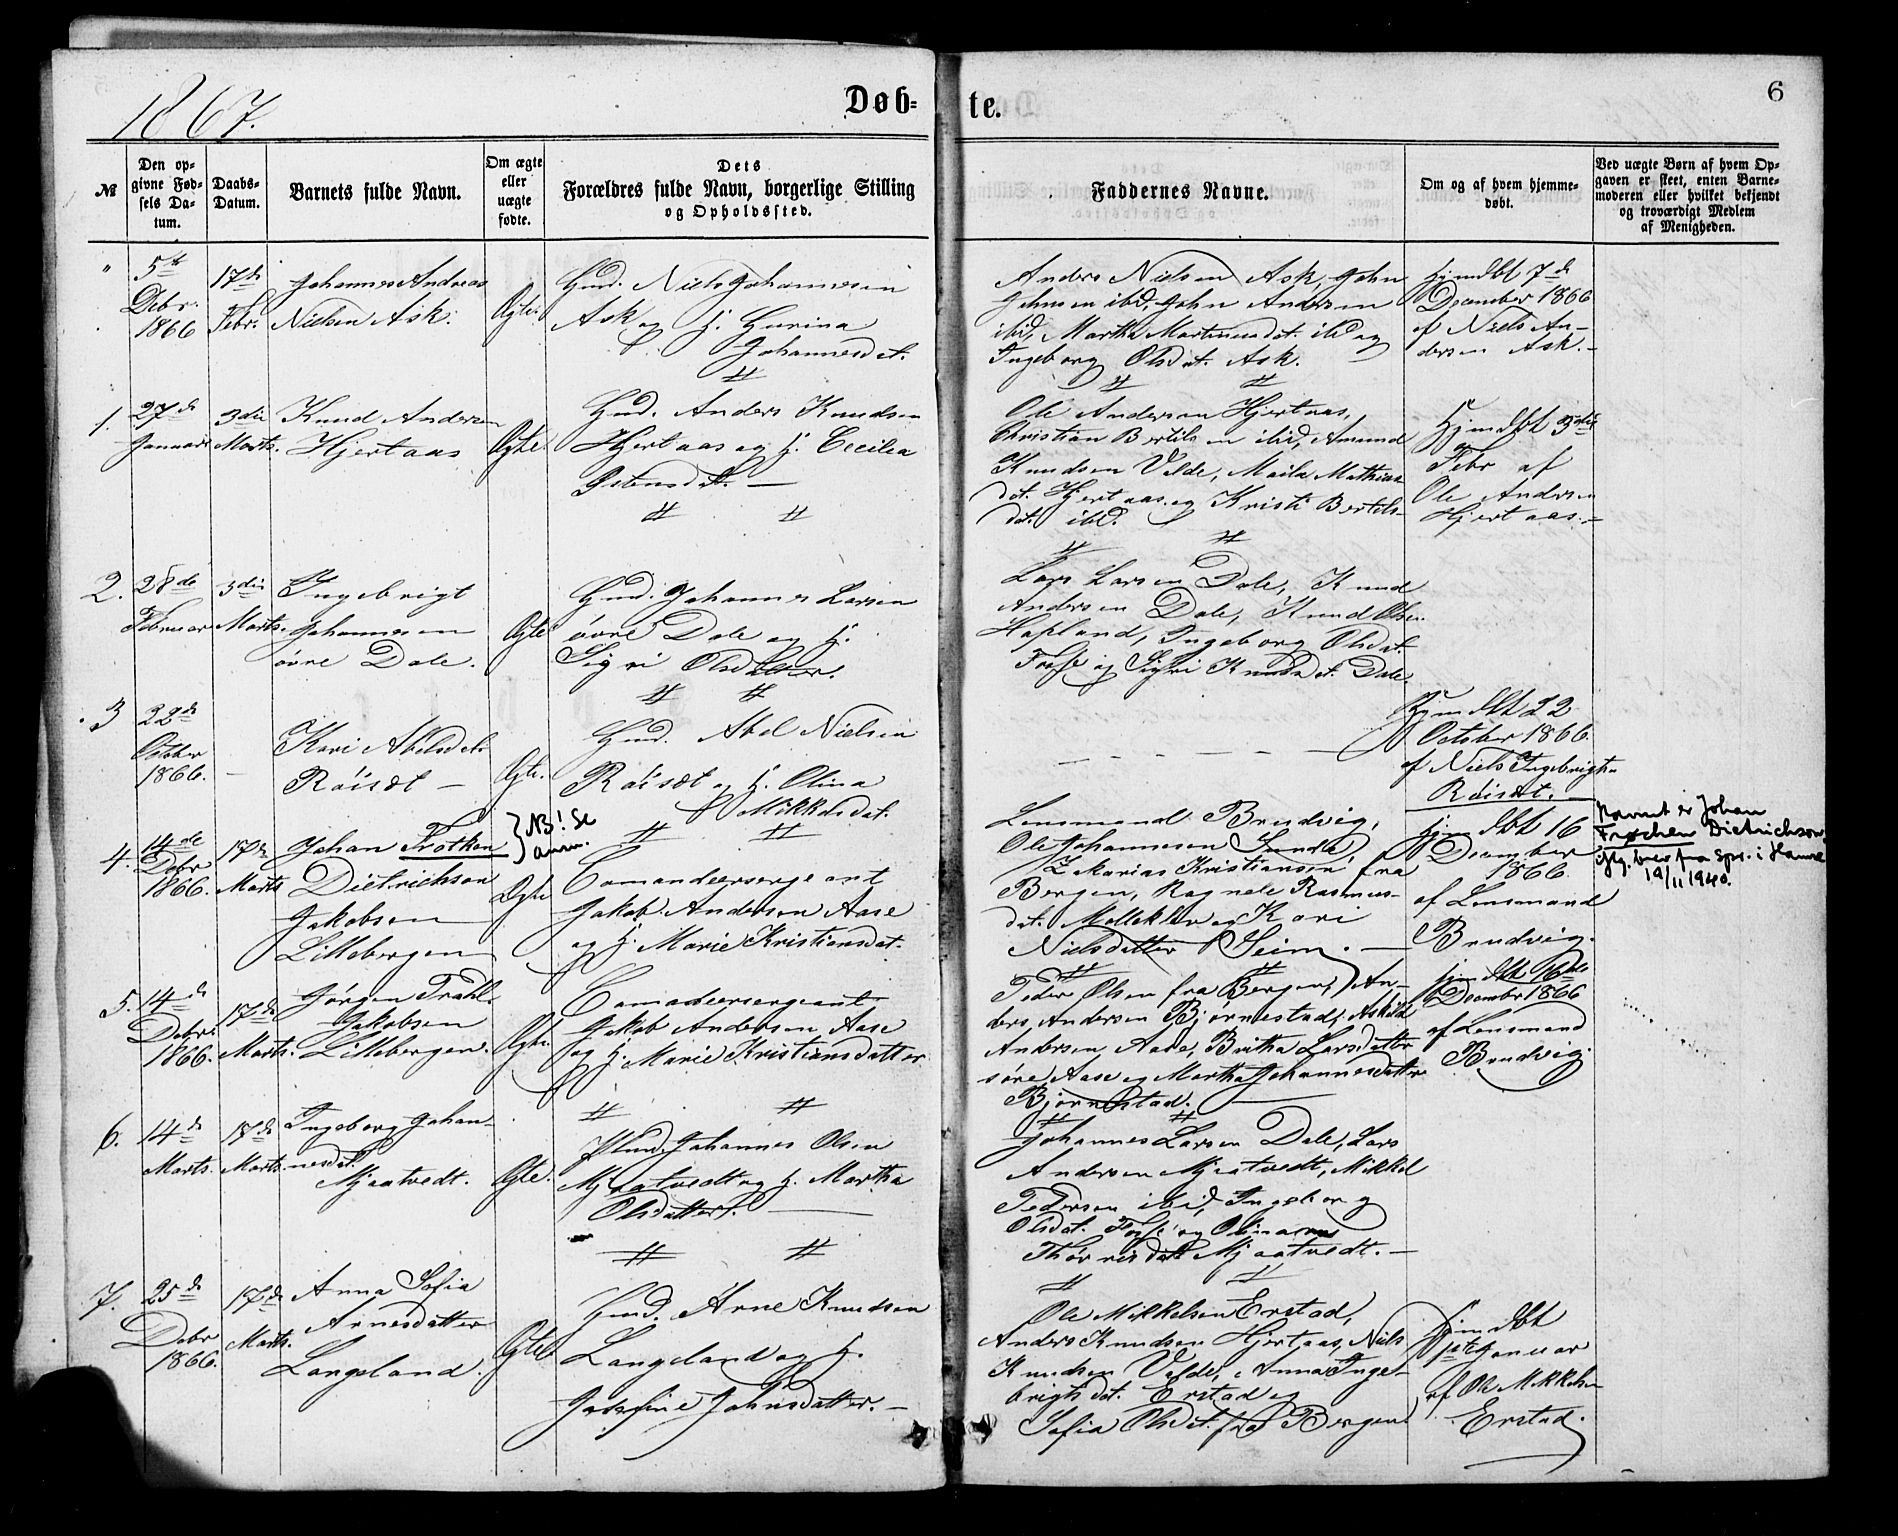 1867.
Døb-
te.
6
№
Den op-
givne Fød-
sels Da-
tum.
Daabs-
Datum.
Barnets fulde Navn.
Om ægte
eller
uægte
fødte.
Dets
Forældres fulde Navn, borgerlige Stilling
og Opholdssted.
Faddernes Navne.
Om og af hvem hjemme-
døbt.
Ved uægte Børn af hvem Op-
gaven er skeet, enten Barne-
moderen eller hvilket bekjendt
og troværdigt Medlem
af Menigheden.
"
5te
Debr.
1866
17de
Febr.
Johannes Andreas
Nielsen Ask.
Ægte.
Gmd. Niels Johannesen
Ask og h.
Johannesdat.
Anders Nielsen Ask, John
Johnsen ibid, John Andersen
ibid, Martha Martinusdat. ibid og
Ingeborg Olsdat. Ask.
Hjmdbt 7de
December 1866
af Niels An-
dersen Ask.-
1.
27de
Januar
3die
Marts.
Knud Andersen
Hjertaas
Ægte.
Gmd. Anders Knudsen
Hjertaas og h. Cecilia
Ole Andersen Hjertaas,
Christian Bertilsen ibid, Amund
Knudsen Velde, Mathias
dat. Hjertaas og Kristi Bertils-
dat. ibd.
Hjmdbt 3die
Febr af
Ole Andersen
Hjertaas.-
2.
28de
Februar
3die
Marts.
Ingebrigt
Johannesen
øvre Dale.
Ægte
Gmd. Johannes Larsen
øvre Dale og h.
Sigri Olsdatter.
Lars Larsen Dale, Knud
Andersen Dale, Knud Olsen
Hopland, Ingeborg Olsdat.
Fosse og Sigri Knudsdt. Dale.
3
22de
October
1866.
-
Kari Abelsdat.
Röisæt -
Ægte.
Gmd. Abel Nielsen
Röisæt og h. Olina
Mikkelsdat.
Hjmdbt 22
October 1866
af Niels Ingebrigts.
Röisæt.
4.
14de
Debr
1866.
17de
Marts
Johan Trotken
Dietrichson
Jakobsen
Lillebergen
} NB! Se
anm.
Ægte
Comandeersergeant
Jakob Andersen Aase
og h. Marie Kristiansdat.
Lensmand Brudvig,
Ole Johannesen
Zakarias Kristiansen fra
Bergen, Ragnele Rasmus-
dat. og Kari
Nielsdatter Seim. -
hjmdbt 16
December
1866
af Lensmand
Brudvig.
Navnet er Johan
Frochen Dietrichson,
iflg. brev fra spr. i Hamre
19/11 1940.
5.
14de
Debr.
1866.
17de
Marts.
Jørgen Frahl
Jakobsen
Lillebergen.
Ægte.
Comandeersergeant
Jakob Andersen Aase
og h. Marie Kristiansdatter
Peder Olsen fra Bergen, An-
ders Andersen Bjørnestad, Askild
Andersen Aase, Britha Larsdatter
søre Aase og Martha Johannesdatter
Bjørnestad. -
hjmdbt 16de
December 1866
af Lensmand
Brudvig.
6.
14de
Marts.
17de
Marts.
Ingeborg Johan-
nesdat.
Mjaatvedt.
Ægte.
Gmd. Johannes Olsen
Mjaatvedt og h. Martha
Olsdatter. -
Johannes Larsen Dale, Lars
Andersen Mjaatvedt, Mikkel
Pedersen ibid, Ingeborg
Olsdat. Fosse og
Mjaatvedt. -
7.
25de
Debr
1866.
17de
Marts.
Anna Sofia
Arnesdatter
Langeland.
Ægte.
Gmd. Arne Knudsen
Langeland og h.
Josefine Johnsdatter. -
Ole Mikkelsen Erstad,
Anders Knudsen Hjertaas, Niels
Knudsen Velde, Anna Inge-
brigtsdat. Erstad og
Sofia Olsdat. fra Bergen.
hjmdbt
1ste Januar
af Ole Mikkelsen
Erstad.